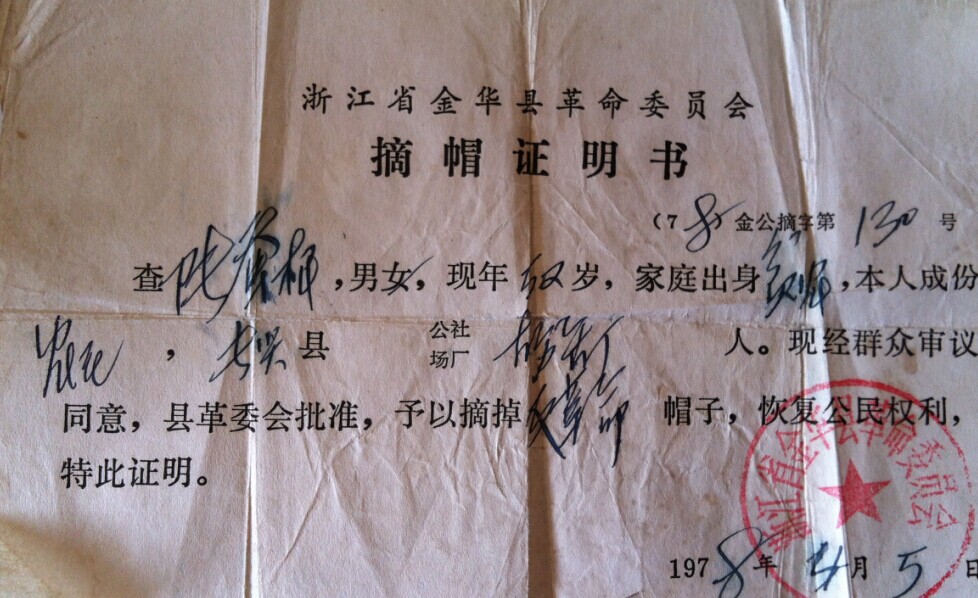 浙江省金华县革命委员会
摘帽证明书
(78)金公摘字第130号
查 ,男女,现年 岁,家庭出身 ,本人成份
, 县 公社场厂 人。现经群众审议
同意,县革委会批准,予以摘掉反革命帽子,恢复公民权利,
特此证明。
浙江省金华县革命委员会
1978年 月5日